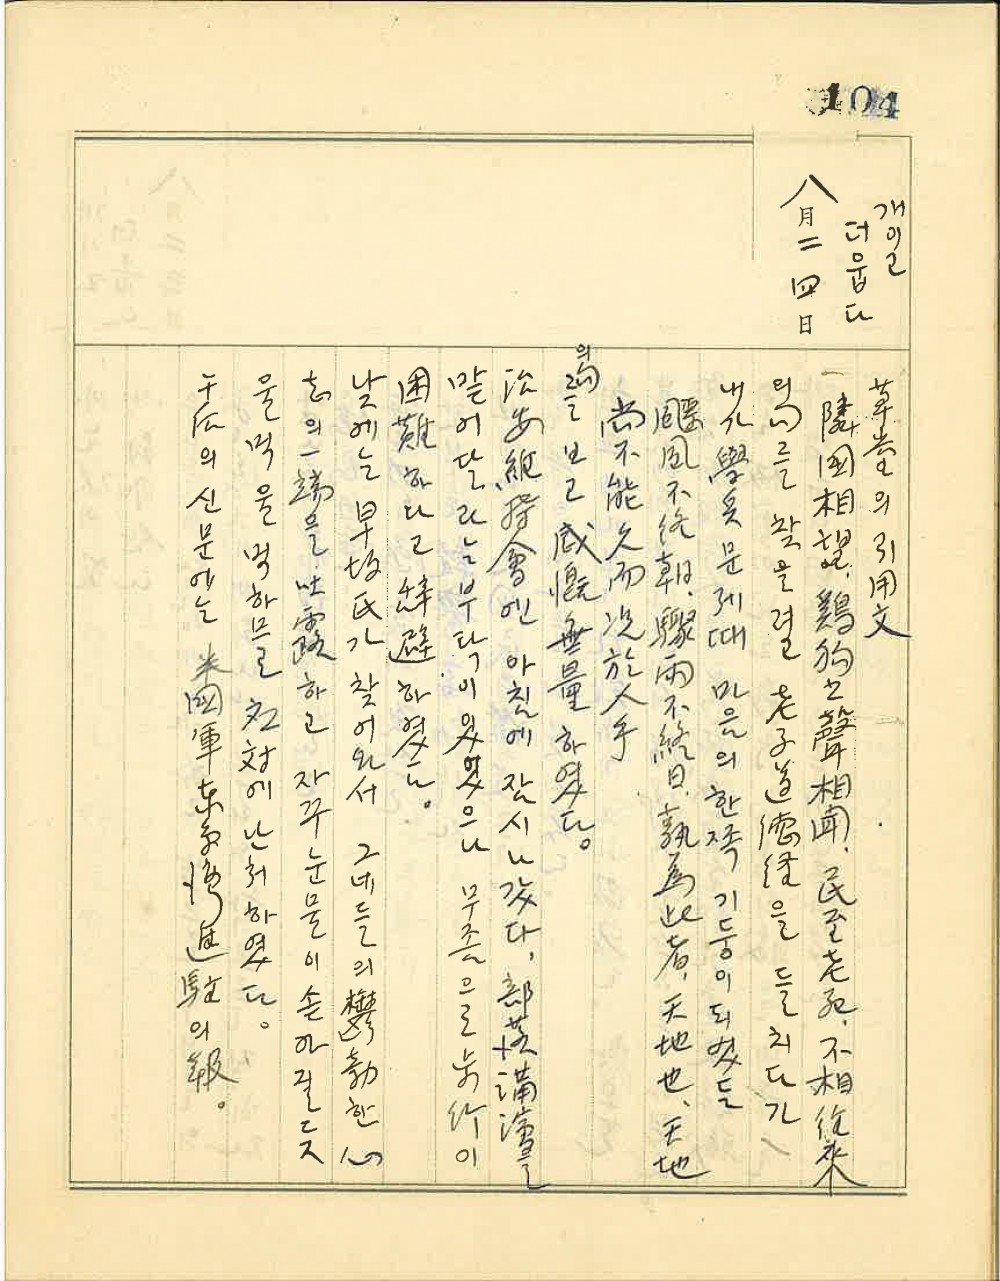 104
개이고
더웁다
八月二四日
草堂의 引用文
隣国相望, 鷄狗之聲相聞, 民至老死, 不相徃來
의 句를 찾을결 老子道德経을 들치다가
내가 學兵문제때 마음의 한쪽 기둥이 되였든
飄風不終朝, 驟雨不終日, 孰爲此者, 天地也, 天地
尙不能久而况於人乎
의 句를 보고 感慨無量하였다。
治安維持會엔 아침에 잠시 나갔다, 部落講演을
말어달라는 부탁이 있었으나 무좀으로 步行이
困難하다고 辞避하였다。
낮에는 早坂氏가 찾어와서 그네들의 鬱勃한 心
志의 一端을 吐露하고 자꾸 눈물이 손까질듯
울먹울먹하므로 対에 난처하였다。
千底의 신문에는 米國軍東京湾進駐의 報。